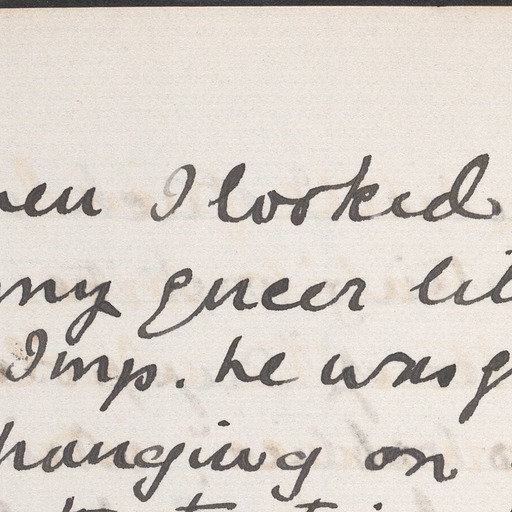 hen I looked
my queer lit
Imp. he was g
hanging on